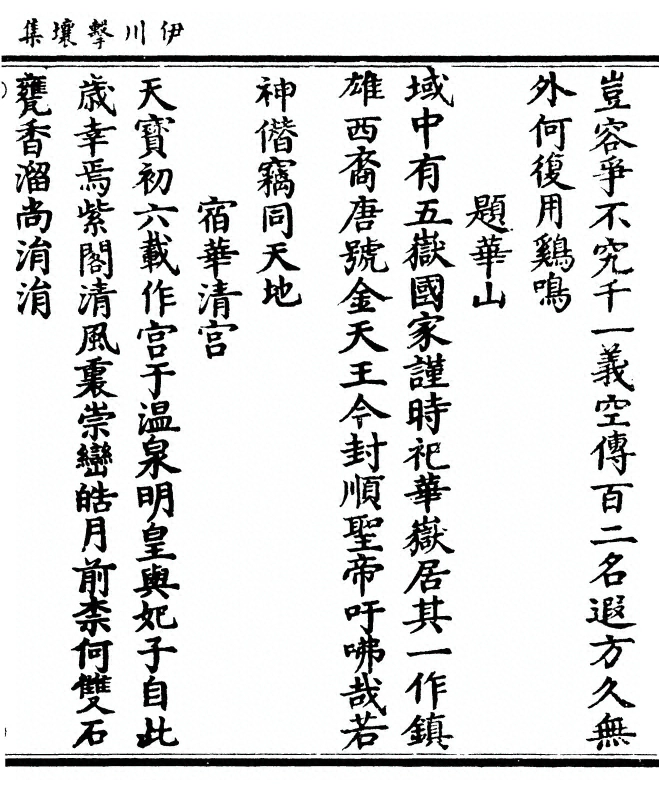 伊川擊壤集
豈容爭不究千一義空傳百二名遐方久無
外何復用鷄鳴
題華山
域中有五嶽國家謹時祀華嶽居其一作鎮
雄西裔唐號金天王今封順聖帝吁咈哉若
神僭竊同天地
宿華清宫
天寶初六載作宫于温泉明皇與妃子自此
歲幸焉紫閣清風裏崇巒皓月前柰何雙石
甕香溜尚涓涓